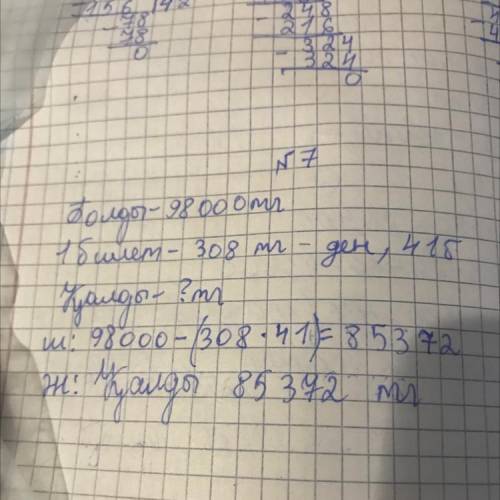 - 78
78
0
- 248
216
- 324
324
0
№7
Болды - 98000тг
1 билет - 308 тг - ден, 41б
Қалды - ?тг
ш: 98000-(308·41)=85372
ж: Қалды 85372 тг